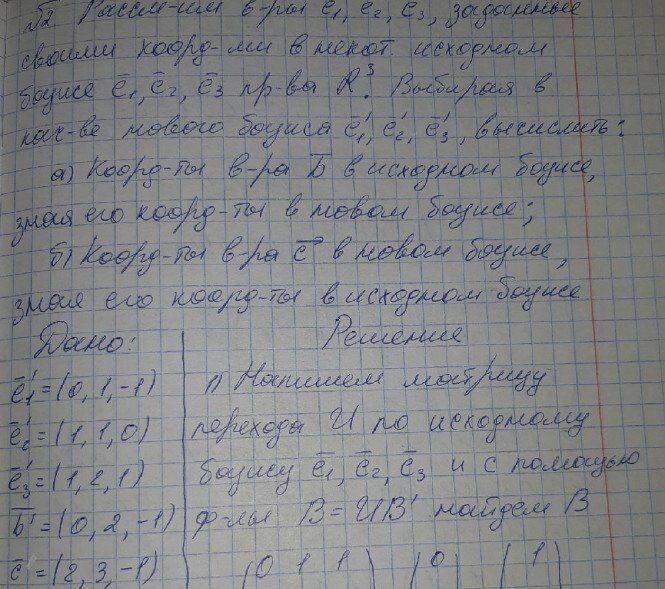 №2 Рассм-им в-ры e̅₁, e̅₂, e̅₃, заданные
своими коорд-ми в некот. исходном
базисе e̅₁, e̅₂, e̅₃ пр-ва R³. Выбирая в
кач-ве нового базиса e̅₁', e̅₂', e̅₃', вычислить:
а) Коорд-ты в-ра b̅ в исходном базисе,
зная его коорд-ты в новом базисе;
б) Коорд-ты в-ра c⃗ в новом базисе,
зная его коорд-ты в исходном базисе
Дано: Решение
e̅₁' = (0, 1, -1) 1) Напишем матрицу
e̅₂' = (1, 1, 0) перехода U по исходному
e̅₃' = (1, 2, 1) базису e̅₁, e̅₂, e̅₃ и с помощью
b̅' = (0, 2, -1) ф-лы B = UB' найдем B
c̅ = (2, 3, -1) (0 1 1) (0) (1